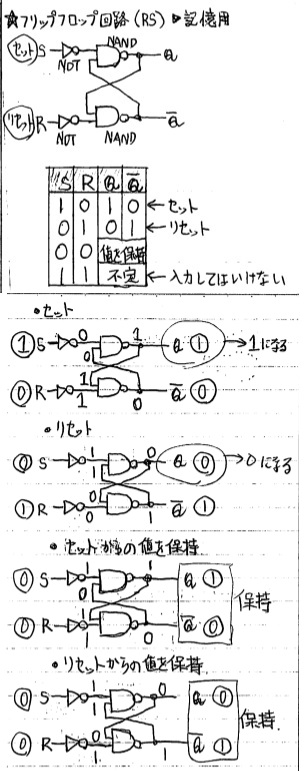 ★フリップフロップ回路(RS) ▶記憶用
セット S NOT NAND Q
リセット R NOT NAND Q̅
S R Q Q̅
1 0 1 0 ←セット
0 1 0 1 ←リセット
0 0 値を保持
1 1 不定 ←入力してはいけない
・セット
① S 0 1 Q ① →1になる
0
1
⓪ R 1 0 Q̅ ⓪
・リセット
⓪ S 1 0 Q ⓪ →0になる
1
0
① R 0 1 Q̅ ①
・セットからの値を保持
⓪ S 1 1 Q ①
0 保持
1
⓪ R 1 0 Q̅ ⓪
・リセットからの値を保持
⓪ S 1 0 Q ⓪
1 保持.
0
⓪ R 1 1 Q̅ ①